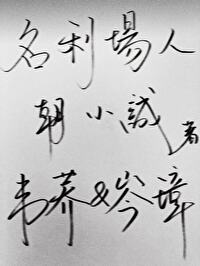 名利場人
朝小誠 著
韦荞&岑璋